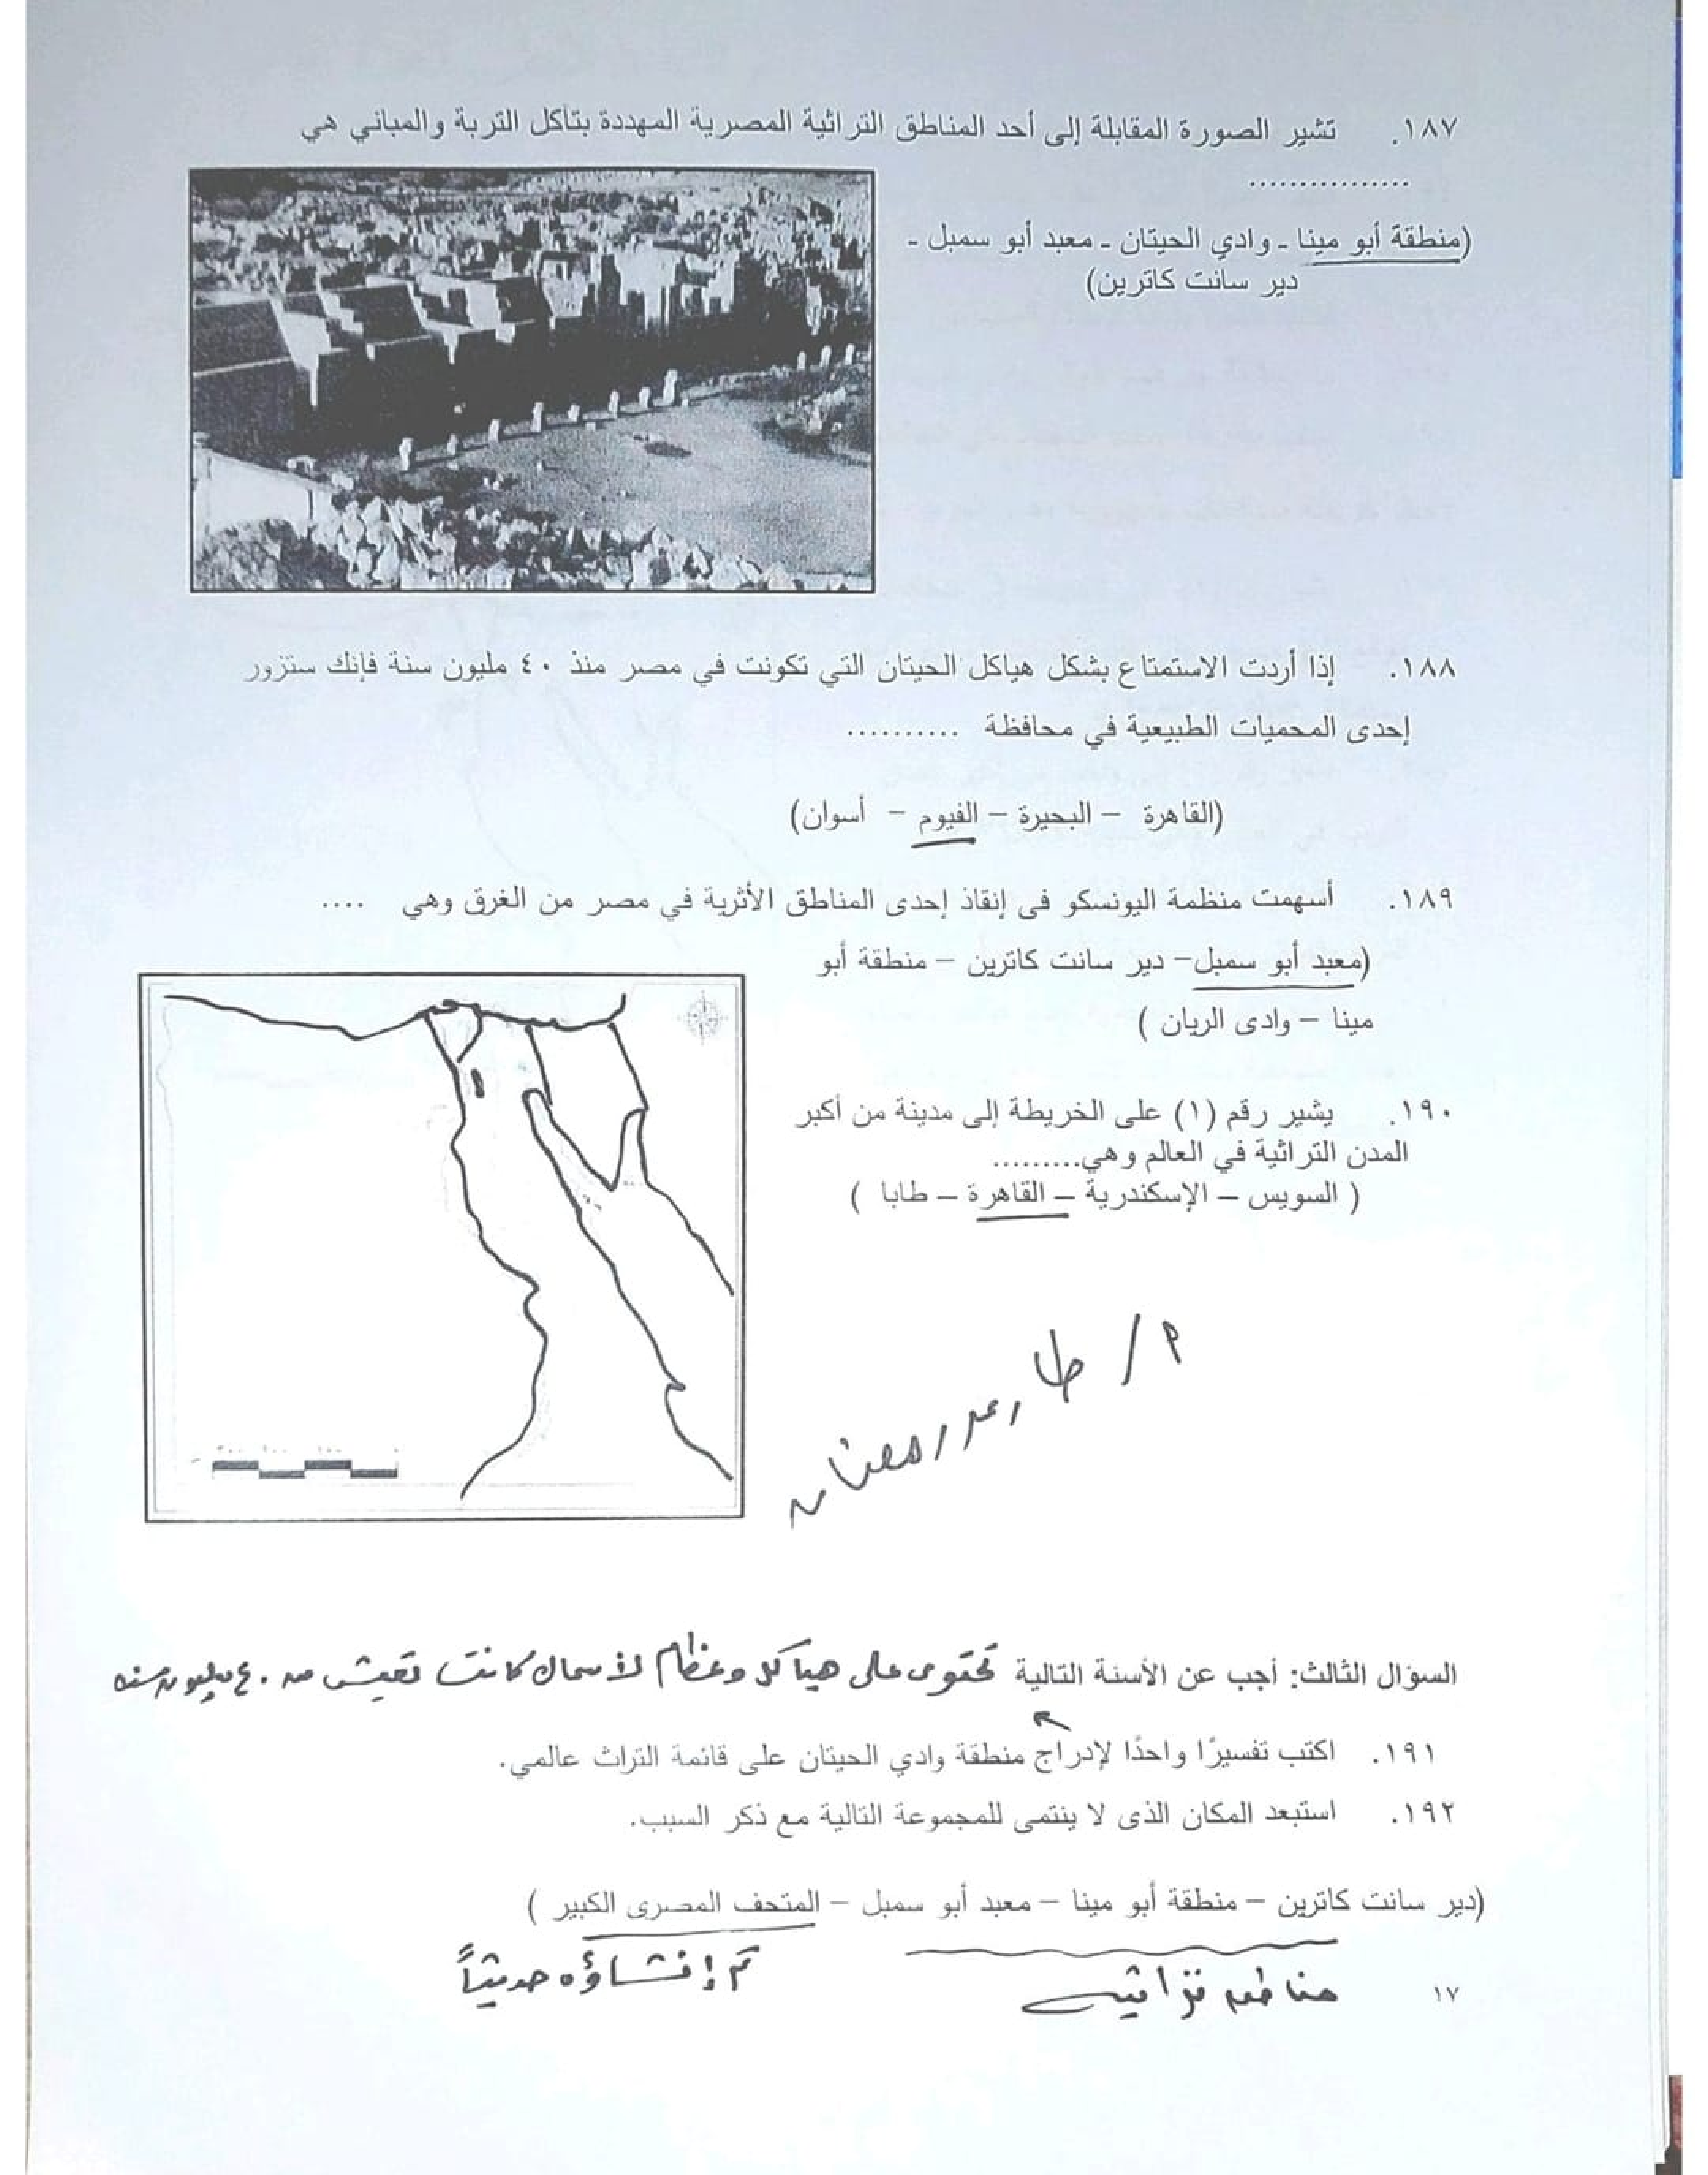 ١٨٧. تشير الصورة المقابلة إلى أحد المناطق التراثية المصرية المهددة بتآكل التربة والمباني هي
................
(منطقة أبو مينا - وادي الحيتان - معبد أبو سمبل -
دير سانت كاترين)
١٨٨. إذا أردت الاستمتاع بشكل هياكل الحيتان التي تكونت في مصر منذ ٤٠ مليون سنة فإنك ستزور
إحدى المحميات الطبيعية في محافظة ..........
(القاهرة – البحيرة – الفيوم – أسوان)
١٨٩. أسهمت منظمة اليونسكو فى إنقاذ إحدى المناطق الأثرية في مصر من الغرق وهي ....
(معبد أبو سمبل– دير سانت كاترين – منطقة أبو
مينا – وادى الريان )
١٩٠. يشير رقم (١) على الخريطة إلى مدينة من أكبر
المدن التراثية في العالم وهي.........
( السويس – الإسكندرية – القاهرة – طابا )
م /
السؤال الثالث: أجب عن الأسئة التالية تحتوى على هياكل وعظام لأسماك كانت تعيش من ٤٠ مليون سنه
١٩١. اكتب تفسيرًا واحدًا لإدراج منطقة وادي الحيتان على قائمة التراث عالمي.
١٩٢. استبعد المكان الذى لا ينتمى للمجموعة التالية مع ذكر السبب.
(دير سانت كاترين – منطقة أبو مينا – معبد أبو سمبل – المتحف المصرى الكبير )
مناطق تراثيه تم إنشاؤه حديثاً
١٧